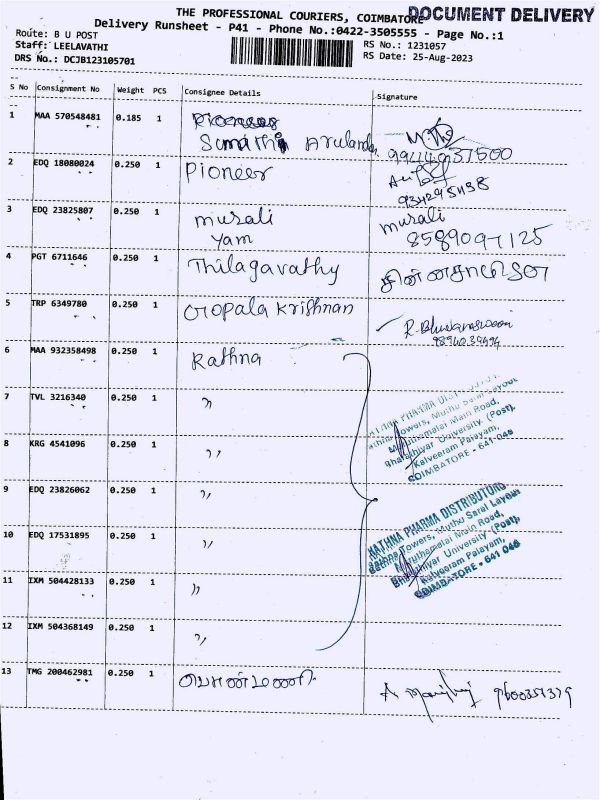 THE PROFESSIONAL COURIERS, COIMBATORE
DOCUMENT DELIVERY
Delivery Runsheet - P41 - Phone No.:0422-3505555 - Page No.:1
Route: B U POST
Staff: LEELAVATHI
RS No.: 1231057
DRS No.: DCJB123105701
RS Date: 25-Aug-2023
S No Consignment No Weight PCS Consignee Details Signature
1 MAA 570548481 0.185 1 Pioneer
Sumathi Arulanda
2 EDQ 18080024 0.250 1 Pioneer
3 EDQ 23825807 0.250 1 murali murali
Yam 8589097125
4 PGT 6711646 0.250 1 Thilagavathy
5 TRP 6349780 0.250 1 Gopala Krishnan
R. Bhuvaneswari
6 MAA 932358498 0.250 1 Rathna
7 TVL 3216340 0.250 1 〃
8 KRG 4541096 0.250 1 〃
Rathna Towers, Muthu Sarai Layout
Maruthamalai Main Road,
Bharathiyar University (Post),
Kalveeram Palayam,
COIMBATORE - 641 046
9 EDQ 23826062 0.250 1 〃
10 EDQ 17531895 0.250 1 〃
RATHNA PHARMA DISTRIBUTORS
Rathna Towers, Muthu Sarai Layout
Maruthamalai Main Road,
Bharathiyar University (Post),
Kalveeram Palayam,
COIMBATORE - 641 046
11 IXM 504428133 0.250 1 〃
12 IXM 504368149 0.250 1 〃
13 TMG 200462981 0.250 1 பெண்மணி